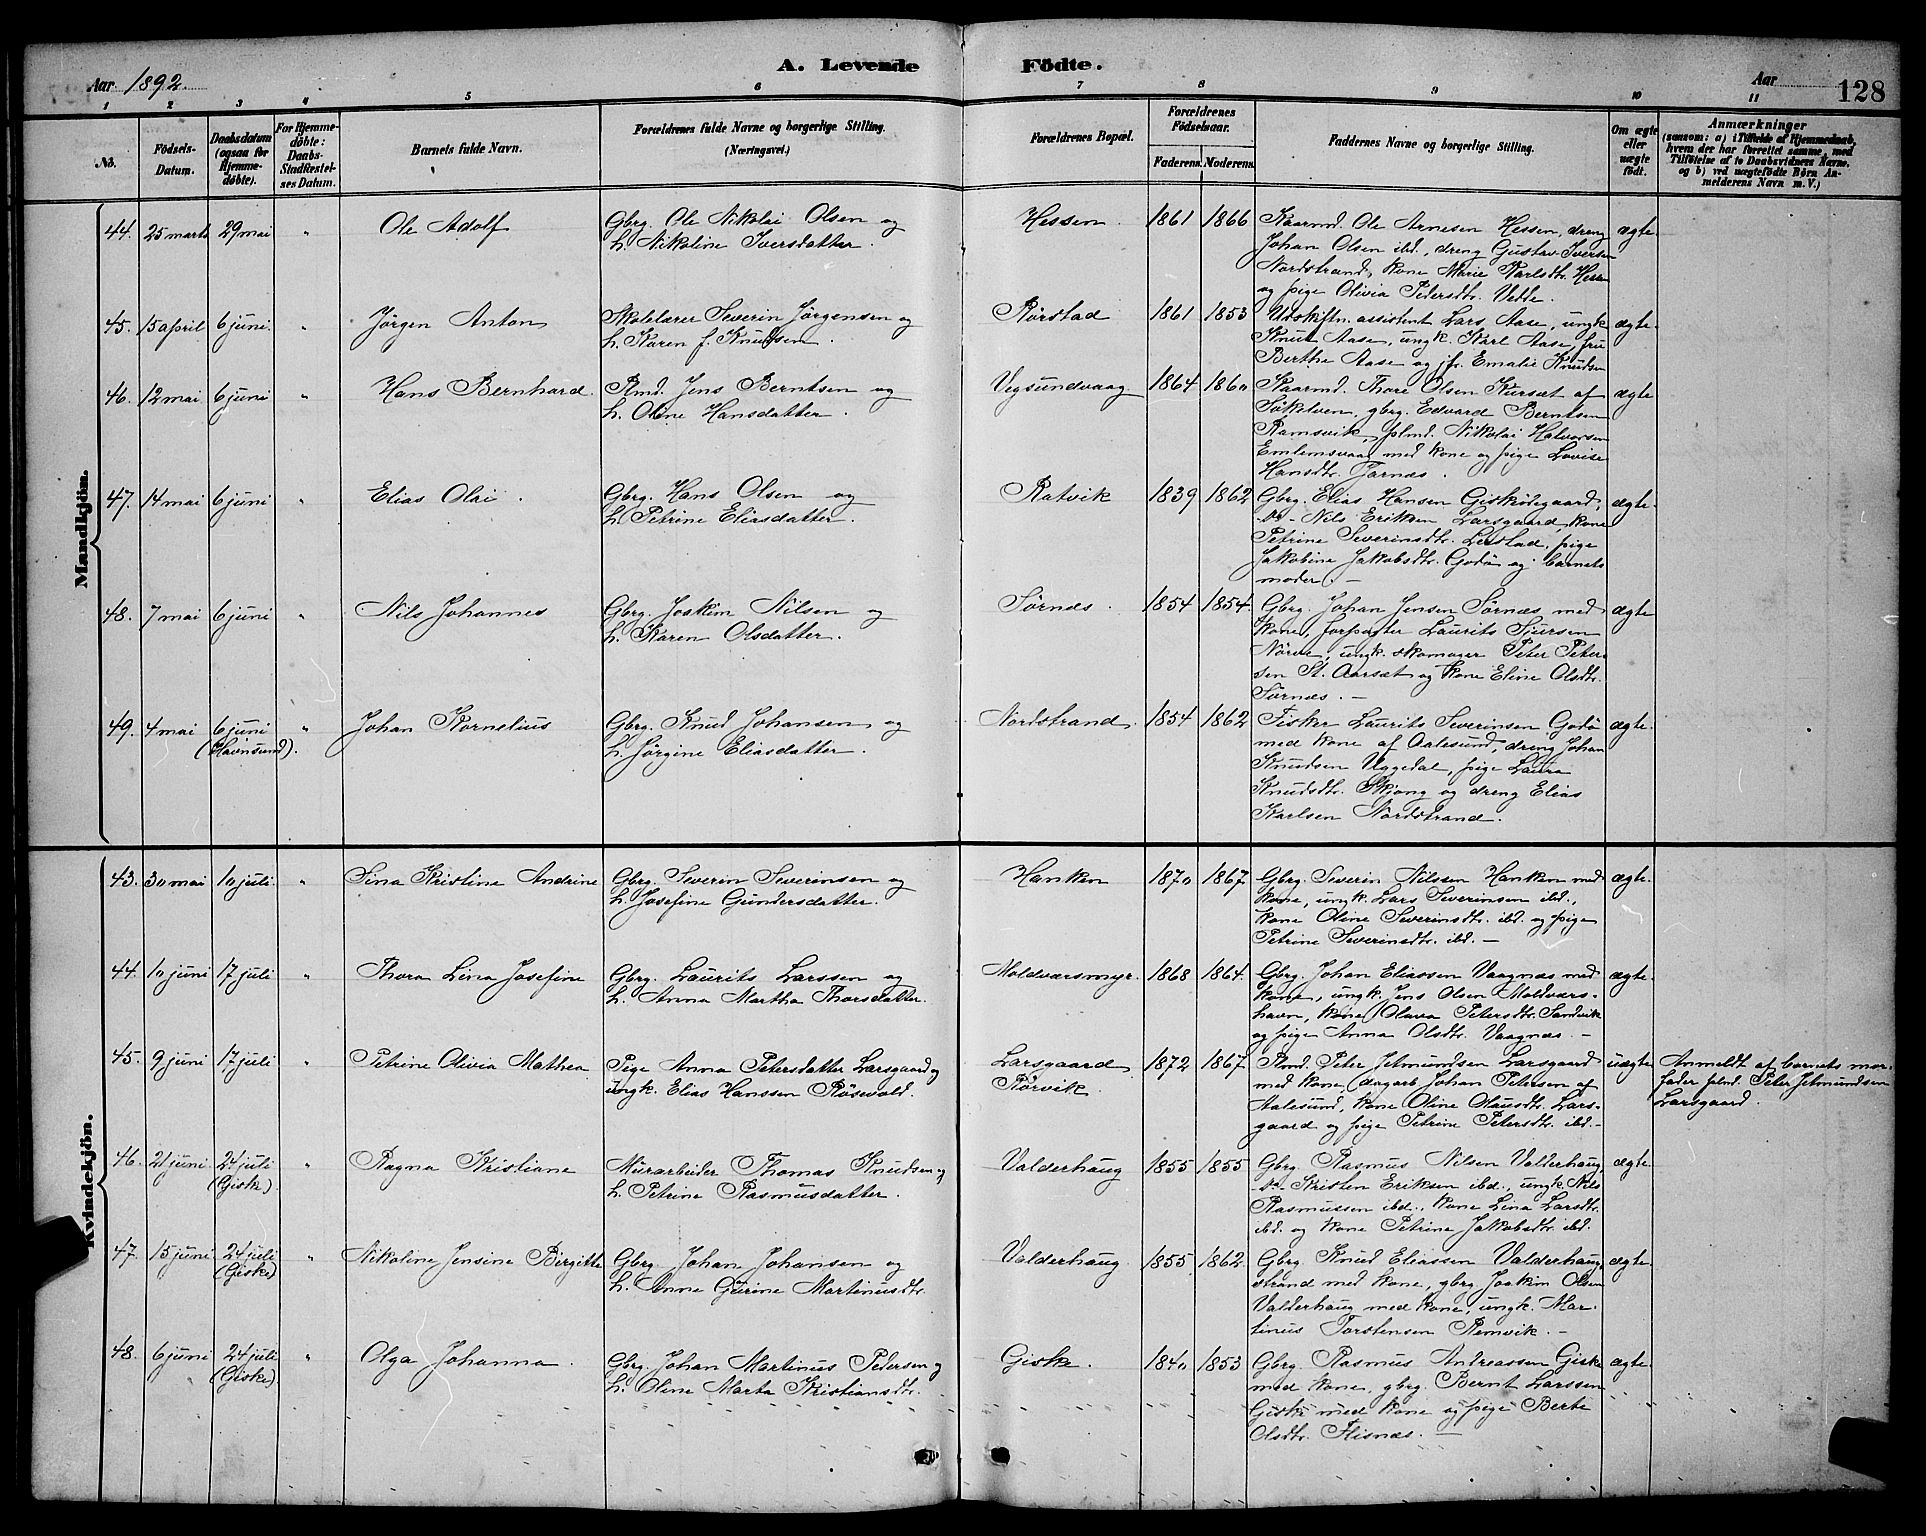 Aar 1892
A. Levende Födte.
Aar
128
1 2 3 4 5 6 7 8 9 10 11
No.
Födsels-
Datum.
Daabsdatum
(ogsaa for
Hjemme-
døbte).
For Hjemme-
døbte:
Daabs-
Stadfæstel-
ses Datum.
Barnets fulde Navn.
Forældrenes fulde Navne og borgerlige Stilling.
(Næringsvei.)
Forældrenes Bopæl.
Forældrenes
Födselsaar.
Faderens.
Moderens.
Faddernes Navne og borgerlige Stilling.
Om ægte
eller
uægte
født.
Anmærkninger
(saasom: a) i Tilfælde af Hjemmedaab,
hvem der har forrettet samme, med
Tilföielse af to Daabsvidners Navne,
og b) ved uægtefödte Børn An-
melderens Navn m. V.)
Mandkjön.
44. 25 marts 29 mai " Ole Adolf
Gbrg. Ole Nikolai Olsen og
h. Nikoline Iversdatter.
Hessen. 1861 1866
Kaarmd. Ole Arnesen Hessen, dreng
Johan Olsen ibd., dreng Gustav Iversen
Nordstrand, kone Marie Karlsdtr. Hessen
og pige Olivia Pedersdtr. Vedde.
ægte
45. 15 april 6 juni. " Jörgen Anton
Skolelærer Severin Jørgensen og
h. Karen f. Knudsen.
Rörstad 1861 1853
Udskiftn. assistent Lars Aase, ungk.
Knut Aase, ungk. Karl Aase, fru
Berthe Aase og jfr. Emalie Knudsen
ægte.
46. 12 mai 6 juni " Hans Bernhard.
Plmd. Jens Berntsen og
h. Oline Hansdatter.
Vegsundvaag 1864 1860
Kaarmd. Thore Olsen Kursæt af
Sökelven, gbrg. Edvard Berntsen
Ramsvik, plmd. Nikolai Halvorsen
Emlemsvaag med kone og pige Lovise
Hansdtr. Tørnes.
ægte
47. 14 mai 6 juni " Elias Olai.
Gbrg. Hans Olsen og
h. Petrine Eliasdatter.
Ratvik 1839 1862
Gbrg. Elias Hansen Giskødegaard,
-do- Nils Eriksen Larsgaard, kone
Petrine Severinsdtr. Leistad, pige
Jakobine Jakobsdtr. Godø og barnets
moder. -
ægte.
48. 7 mai 6 juni " Nils Johannes
Gbrg. Joakim Nilsen og
h. Karen Olsdatter.
Sørnes. 1854 1854.
Gbrg. Johan Jensen Sørnes med
kone, forpagter Laurits Sjursen
Nörve, ungk. skomager Peter Peter-
sen St. Aarsæt og kone Eline Olsdtr.
Sørnes. -
ægte
49. 4 mai 6 juni " Johan Kornelius
(Havnsund).
Gbrg. Knud Johansen og
h. Jørgine Eliasdatter.
Nordstrand. 1854 1862
Fisker Laurits Severinsen Godø
med kone af Aalesund, dreng Johan
Knudsen Uggedal, pige Laura
Knudsdtr. Skjong og dreng Elias
Karlsen Nordstrand.
ægte.
Kvindekjön.
43. 30 mai 10 juli. " Sina Kristine Andrine
Gbrg. Severin Severinsen og
h. Josefine Gundersdatter.
Hanken 1870 1867
Gbrg. Severin Nilssen Hanken med
kone, ungk. Lars Severinsen ibd.,
kone Oline Severinsdtr. ibd. og pige
Petrine Severinsdtr. ibd. -
ægte.
44. 10 juni 17 juli " Thora Lina Josefine
Gbrg. Laurits Larssen og
h. Anna Martha Thorsdatter.
Moldværsmyr. 1868 1864.
Gbrg. Johan Eliassen Vaagnæs med
kone, ungk. Jens Olsen Moldværs-
havn, kone Olava Petersdtr. Sandvik
og pige Anna Olsdtr. Vaagnæs. -
ægte.
45. 9 juni 17 juli " Petrine Olivia Mathea
Pige Anna Petersdatter Larsgaard og
ungk. Elias Hanssen Røsevold.
Larsgaard
Rørvik 1872 1867
Plmd. Peter Jetmundsen Larsgaard
med kone, dagarb. Johan Petersen af
Aalesund, kone Oline Olausdtr. Lars-
gaard og pige Petrine Petersdtr. ibd. -
uægte
Anmeldt af barnets mor-
fader plmd. Peter Jetmundsen
Larsgaard.
46. 21 juni 24 juli " Ragna Kristiane
(Giske).
Murarbeider Thomas Knudsen og
h. Petrine Rasmusdatter.
Valderhaug 1855 1855.
Gbrg. Rasmus Nilsen Valderhaug,
-do- Kristen Eriksen ibd., ungk. Nils
Rasmussen ibd., kone Lina Larsdtr.
ibd. og kone Petrina Jakobsdtr. ibd.
ægte.
47. 15 juni 24 juli " Nikoline Jensine Birgitte
(Giske)
Gbrg. Johan Johansen og
h. Anne Gurine Martinusdtr.
Valderhaug 1855 1862
Gbrg. Knud Eliassen Valderhaug-
strand med kone, gbrg. Joakim Olsen
Valderhaug med kone, ungk. Mar-
tinus Torstensen Remvik. -
ægte
48. 6 juni 24 juli " Olga Johanna.
(Giske)
Gbrg. Johan Martinus Pedersen og
h. Oline Marta Kristiansdtr.
Giske. 1840 1853
Gbrg. Rasmus Andreassen Giske
med kone, gbrg. Bernt Larssen
Giske med kone og pige Berte
Olsdtr. Flisnæs. -
ægte.